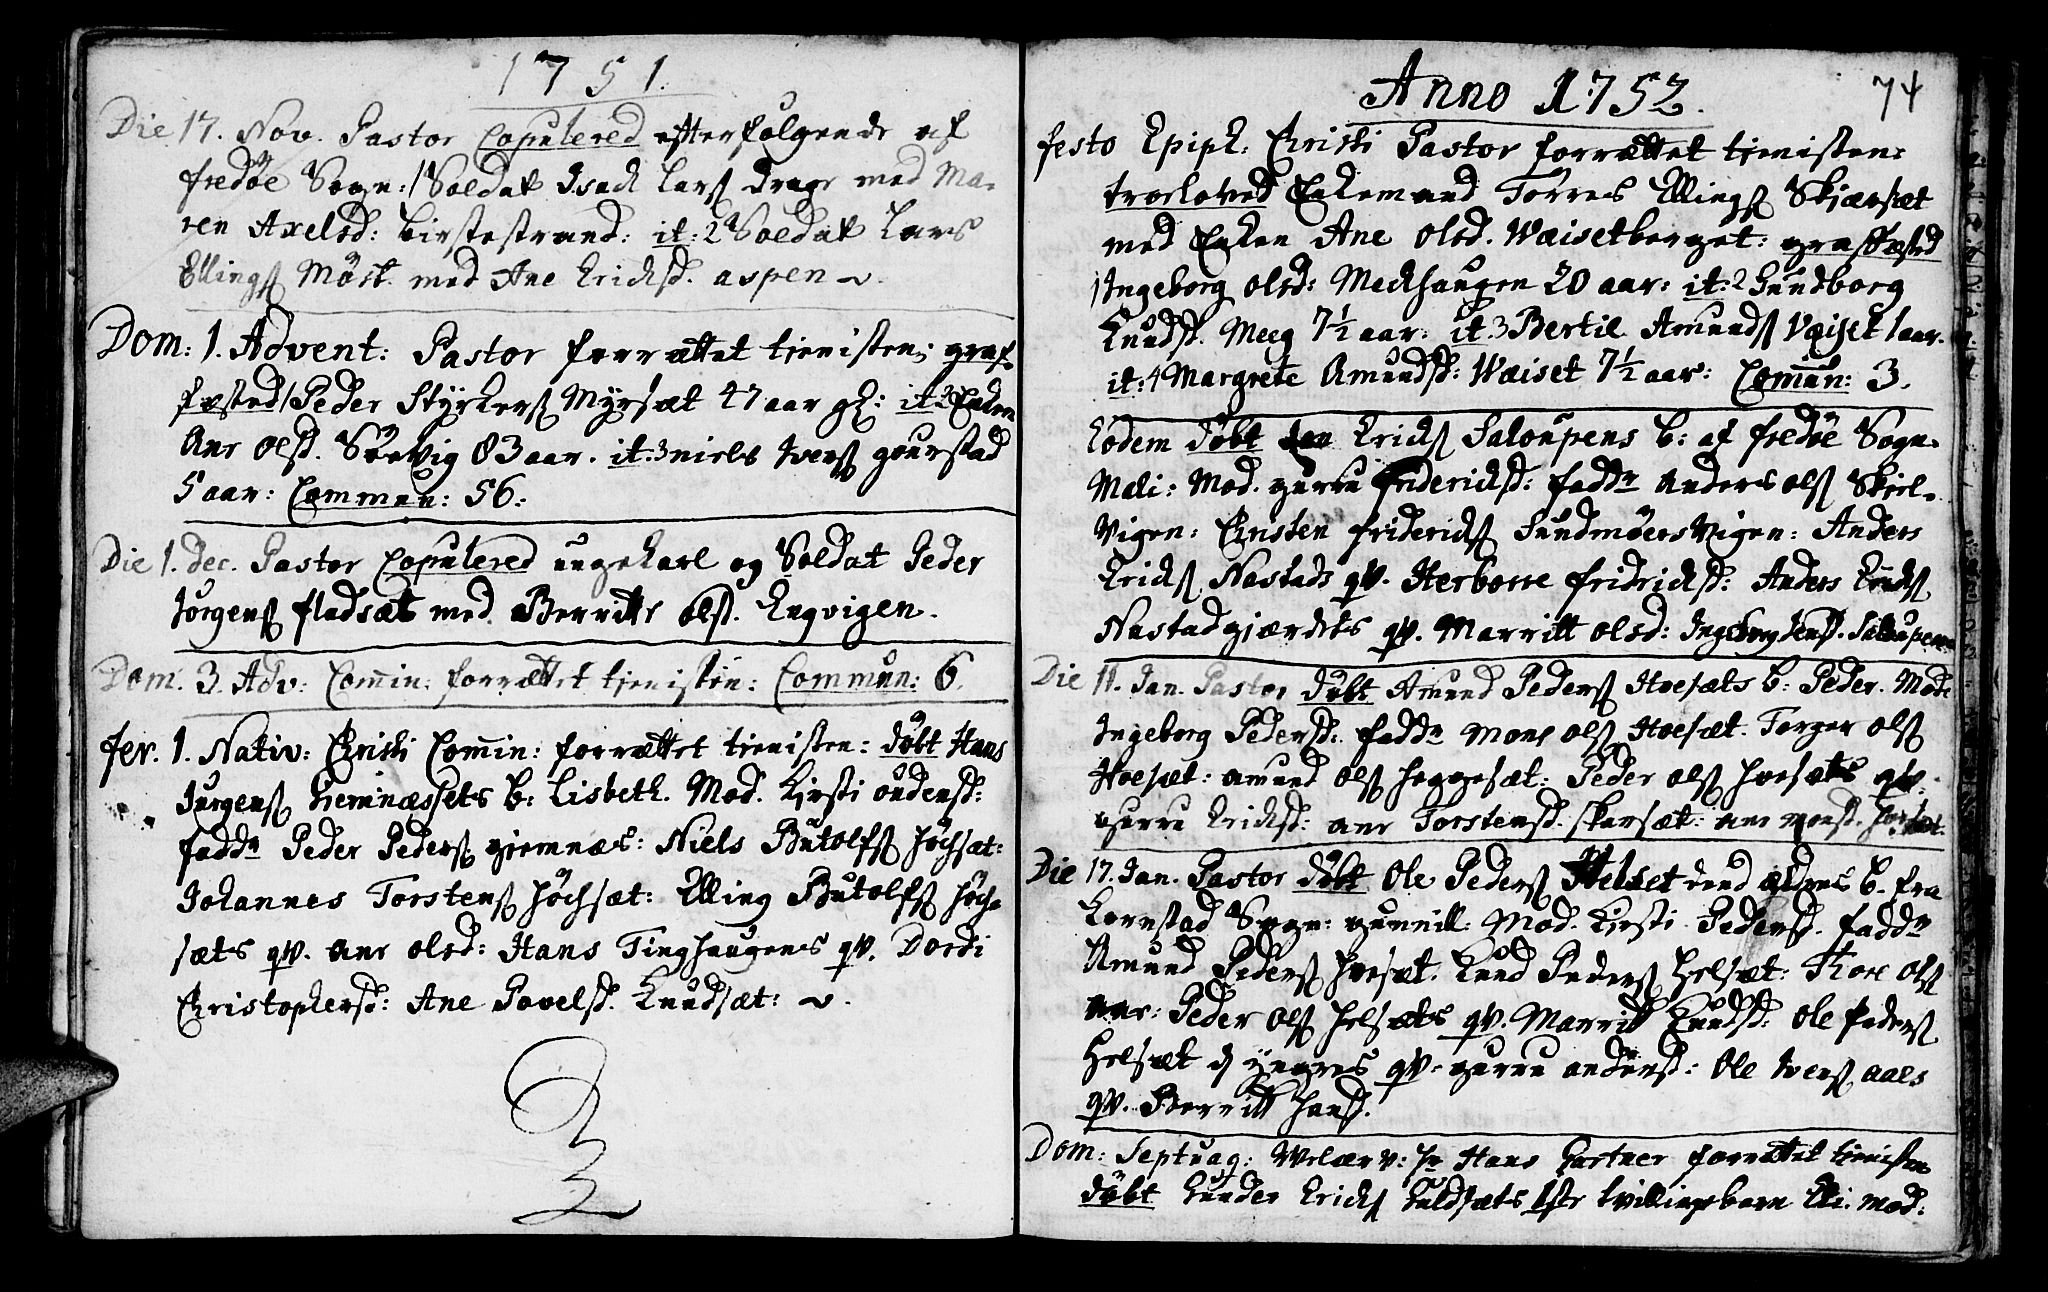 1751.
Die 17. Nov. Pastor Copulered efterfølgende af
fredøe Sogn: 1 Soldat Isach Lars Drage med Ma-
ren Axelsd: birkestrand: it: 2 Soldat Lars
Ellings Møst. med Ane Erichsd. aspen
Dom: 1. Advent: Pastor forrættet tienisten: graf-
fæsted 1 Peder Styrkers Myrsæt 47 aar gl: it: 2 Enken
Ane Olsd. Sørvig 83 aar. it: 3 niels Ivers gourstad
5 aar: Commun: 56:
Die 1. dec. Pastor Copulered ungekarl og Soldat Peder
Jørgens fladsæt med Berritte Olsd. Engvigen.
Dom. 3. Adv: Comin: forrættet tienisten: Commun: 6.
fer. 1. Nativ: Christi Comin: forrættet tienisten: døbt Hans
Jurgens Giemnæssets b: Lisbeth. Mod. Kirsti oudensd:
fadd: Peder Peders giemnæs: Niels Butolfs høchsæt:
Johannes Torstens høchsæt: Elling Butolfs høch-
sæts qv. ane olsd: Hans Tinghaugens qv. Dordi
Christophersd: Ane Povelsd. Knudsæt:
Anno 1752.
74
festo Epiph: Christi Pastor forrættet tienisten:
troeloved Enkemand Torres Ellings Skjærsæt
med Enken Ane Olsd. Wæisetberget: graffæsted
1 Ingeborg olsd: Mechhaugen 20 aar: it: 2 Gundborg
Knudsd. Meeg 7½ aar: it. 3 Bertil Amunds Væiset 1 aar.
it: 4 Margrete Amundsd: Wæiset 7½ aar: Comun: 3.
Eodem døbt Erichs Saloupens b: af fredøe Sogn.
Mali: Mod. gurru friderichsd: fadd: Anders ols Skiel-
vigen: Christen friderichs Sundmøersvigen: Anders
Erichs Nastads qv. Herborre fridrichsd: Anders Knuds
Nastadgjærdets qv. Marritt olsd: Ingeborg Jensd. Saloupens
Die 11. Jan. Pastor døbt Amund Peders Hoesæts b: Peder. Mode
Ingeborg Pedersd: fadd: Mons Ols Hoesæt. Torger ols
Hoesæt: amund ols heggesæt: Peder ols hoesæts qv.
gurru Erichsd: ane Torstensd. skarsæt: ane monsd.
Die 17. Jan. Pastor døbt Ole Peders Helset dend ældres b. fra
Kornstad Sogn: gunnill: Mod. Kirsti Pedersd. fadd:
Amund Peders hoesæt. Knud Peders helsæt: Tore ols
Peder Ols helsæts qv. Marritt Knudsd: Ole peders
helsæt d yngres qv. gurru andersd: Ole Ivers aaes
qv. Berritt hansd.
Dom: Septuag: Welærv: hr Hans Gartner forrættet tienisten
døbt Gunder Erichs Guldsæts 1ste tvillingebarn Eli. mod: